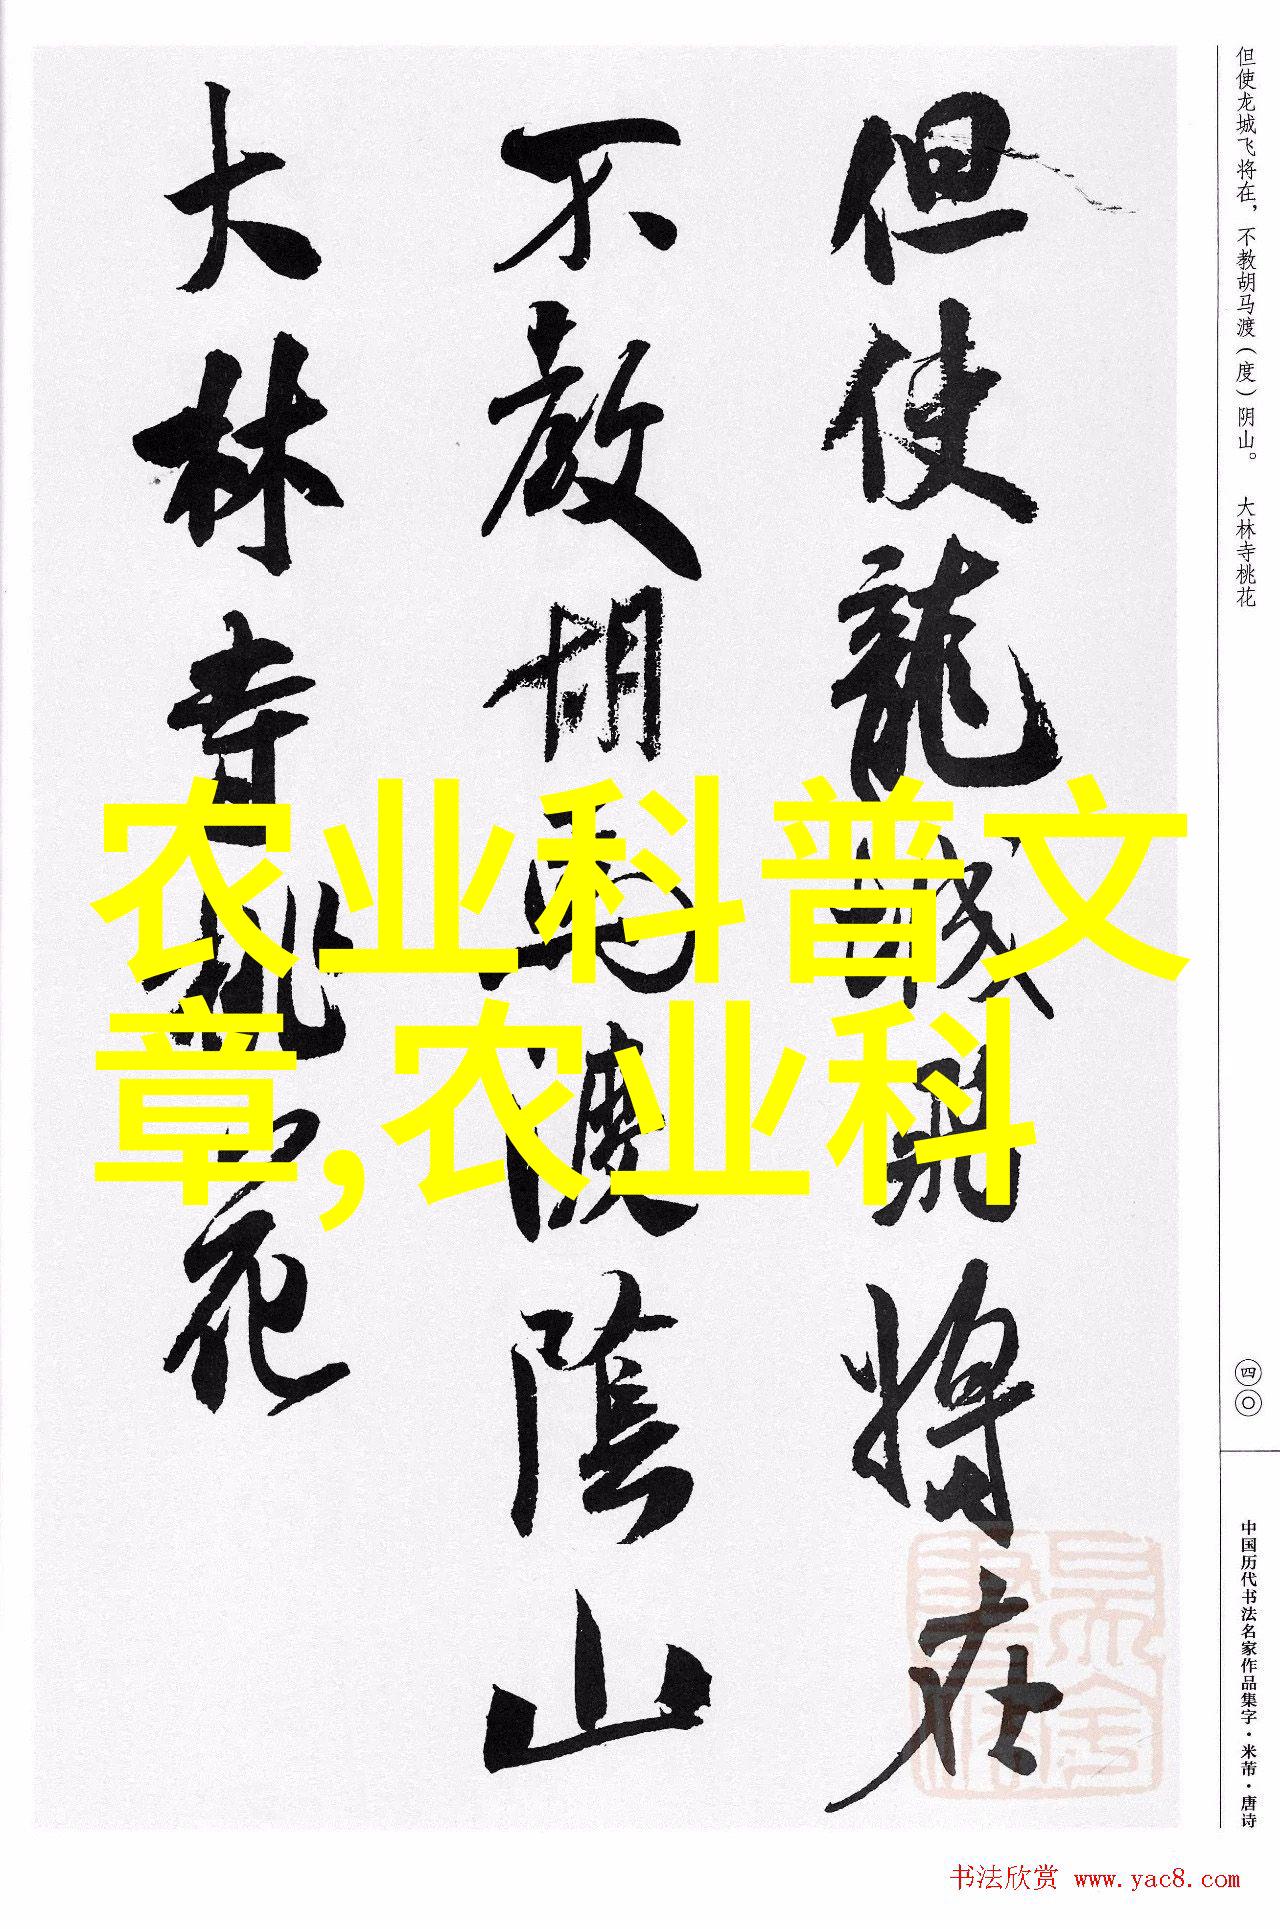 但使龙城飞将在，不教胡马渡（度）阴山。 大林寺桃花
四〇
中国历代书法名家作品集字·米芾·唐诗
但使龍城飛將在
不教胡馬渡陰山
大林寺桃花
农业科普文
章,农业科
书法欣赏 www.yac8.com